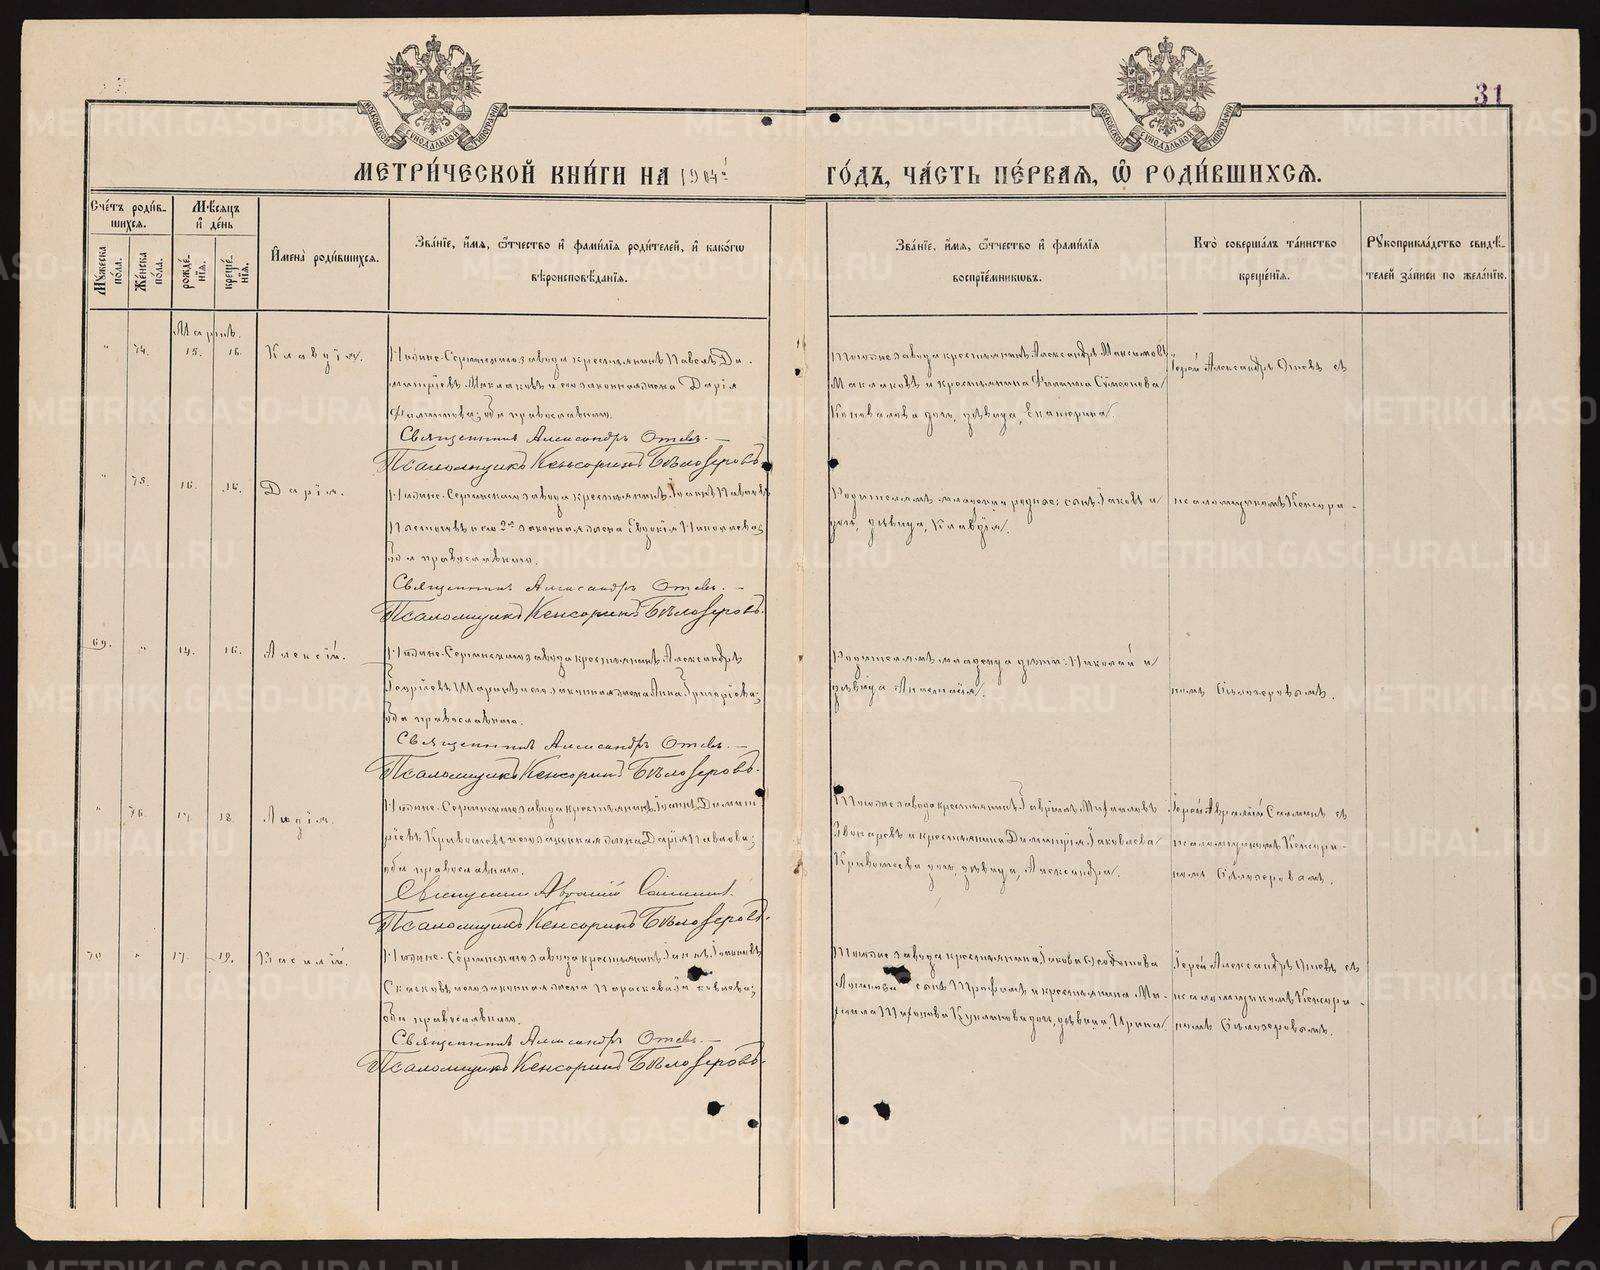 31
МОСКОВСКОЙ СѴНОДАЛЬНОЙ ТИПОГРАФІИ
МОСКОВСКОЙ СѴНОДАЛЬНОЙ ТИПОГРАФІИ
МЕТРИ́ЧЕСКОЙ КНИ́ГИ НА 1904й ГО́ДЪ, ЧА́СТЬ ПЕ́РВАЯ, Ѡ҆ РОДИ́ВШИХСЯ.
Сче́тъ роди́в-
шихся.
Мѣ́сяцъ
и҆ де́нь
Му́жеска по́ла.
Же́нска по́ла.
рожде́-
нїя.
креще́-
нїя.
И҆мена̀ роди́вшихся.
Зва́нїе, и҆́мя, ѻ҆́тчество и҆ фами́лїя роди́телей, и҆ како́гѡ
вѣроисповѣ́данїя.
Зва́нїе, и҆́мя, ѻ҆́тчество и҆ фами́лїя
воспрїе́мникѡвъ.
Кто̀ соверша́лъ та́инство
креще́нїя.
Рꙋкоприкла́дство свидѣ́-
телей за́писи по жела́нїю.
Мартъ.
" 74. 15. 16. Клавдія.
Нижне-Сергинскаго завода крестьянинъ Павелъ Ди-
митріевъ Маклаковъ и его законная жена Дарія
Филиппова; оба православные.
Священникъ Александръ Отевъ.
Псаломщикъ Кенсоринъ Бѣлозеровъ.
Тогоже завода крестьянинъ Александръ Максимовъ
Маклаковъ и крестьянина Филиппа Сѵмеонова
Коновалова дочь, дѣвица, Екатерина.
Іерей Александръ Отевъ съ
" 75. 16. 16. Дарія.
Нижне-Сергинскаго завода крестьянинъ Іоаннъ Павловъ
и его 2я законная жена Евдокія Николаева;
оба православные.
Священникъ Александръ Отевъ.
Псаломщикъ Кенсоринъ Бѣлозеровъ.
Родителямъ младенца родные: сынъ Іаковъ и
дочь, дѣвица, Клавдія.
псаломщикомъ Кенсори-
69. " 14. 16. Алексій.
Нижне-Сергинскаго завода крестьянинъ Александръ
Георгіевъ и его законная жена Анна Григоріева;
оба православные.
Священникъ Александръ Отевъ.
Псаломщикъ Кенсоринъ Бѣлозеровъ.
Родителямъ младенца дѣти: Николай и
дѣвица Анастасія.
номъ Бѣлозеровымъ.
" 76. 17. 18. Лидія.
Нижне-Сергинскаго завода крестьянинъ Іоаннъ Димит-
ріевъ и его законная жена Дарія Павлова;
оба православные.
Священникъ Авраамій
Псаломщикъ Кенсоринъ Бѣлозеровъ.
Тогоже завода крестьянинъ Гавріилъ Михаиловъ
и крестьянина Димитрія Іаковлева
дочь, дѣвица, Александра.
Іерей Авраамій съ
псаломщикомъ Кенсори-
номъ Бѣлозеровымъ.
70 " 17. 19. Василій.
Нижне-Сергинскаго завода крестьянинъ
и его законная жена Параскева
оба православные.
Священникъ Александръ Отевъ.
Псаломщикъ Кенсоринъ Бѣлозеровъ.
Тогоже завода крестьянина Іакова
сынъ Трофимъ и крестьянина Ми-
хаила дочь, дѣвица, Ирина.
Іерей Александръ Отевъ съ
псаломщикомъ Кенсори-
номъ Бѣлозеровымъ.
METRIKI.GASO-URAL.RU